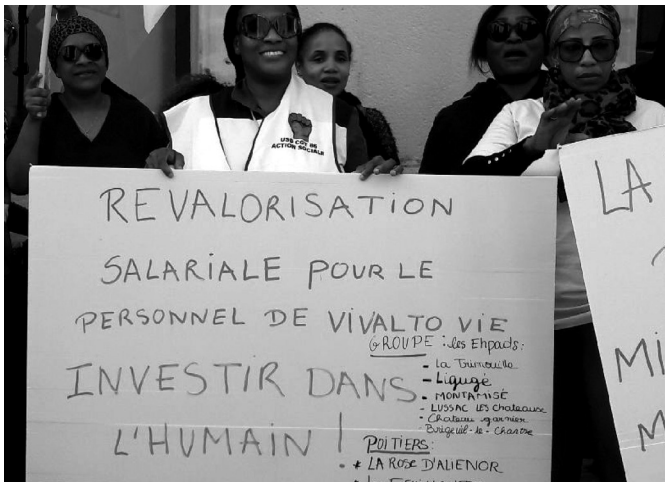 USD CGT 86
ACTION SOCIALE
REVALORISATION
SALARIALE POUR LE
PERSONNEL DE VIVALTO VIE
INVESTIR DANS
L'HUMAIN !
GROUPE : les Ehpads:
- La Trimouille
- Ligugé
- MONTAMISÉ
- LUSSAC LES Chateaux
- Chateau garnier
- Brigueil-le-Chantre
POITIERS:
* LA ROSE D'ALIENOR
LA
MI
M